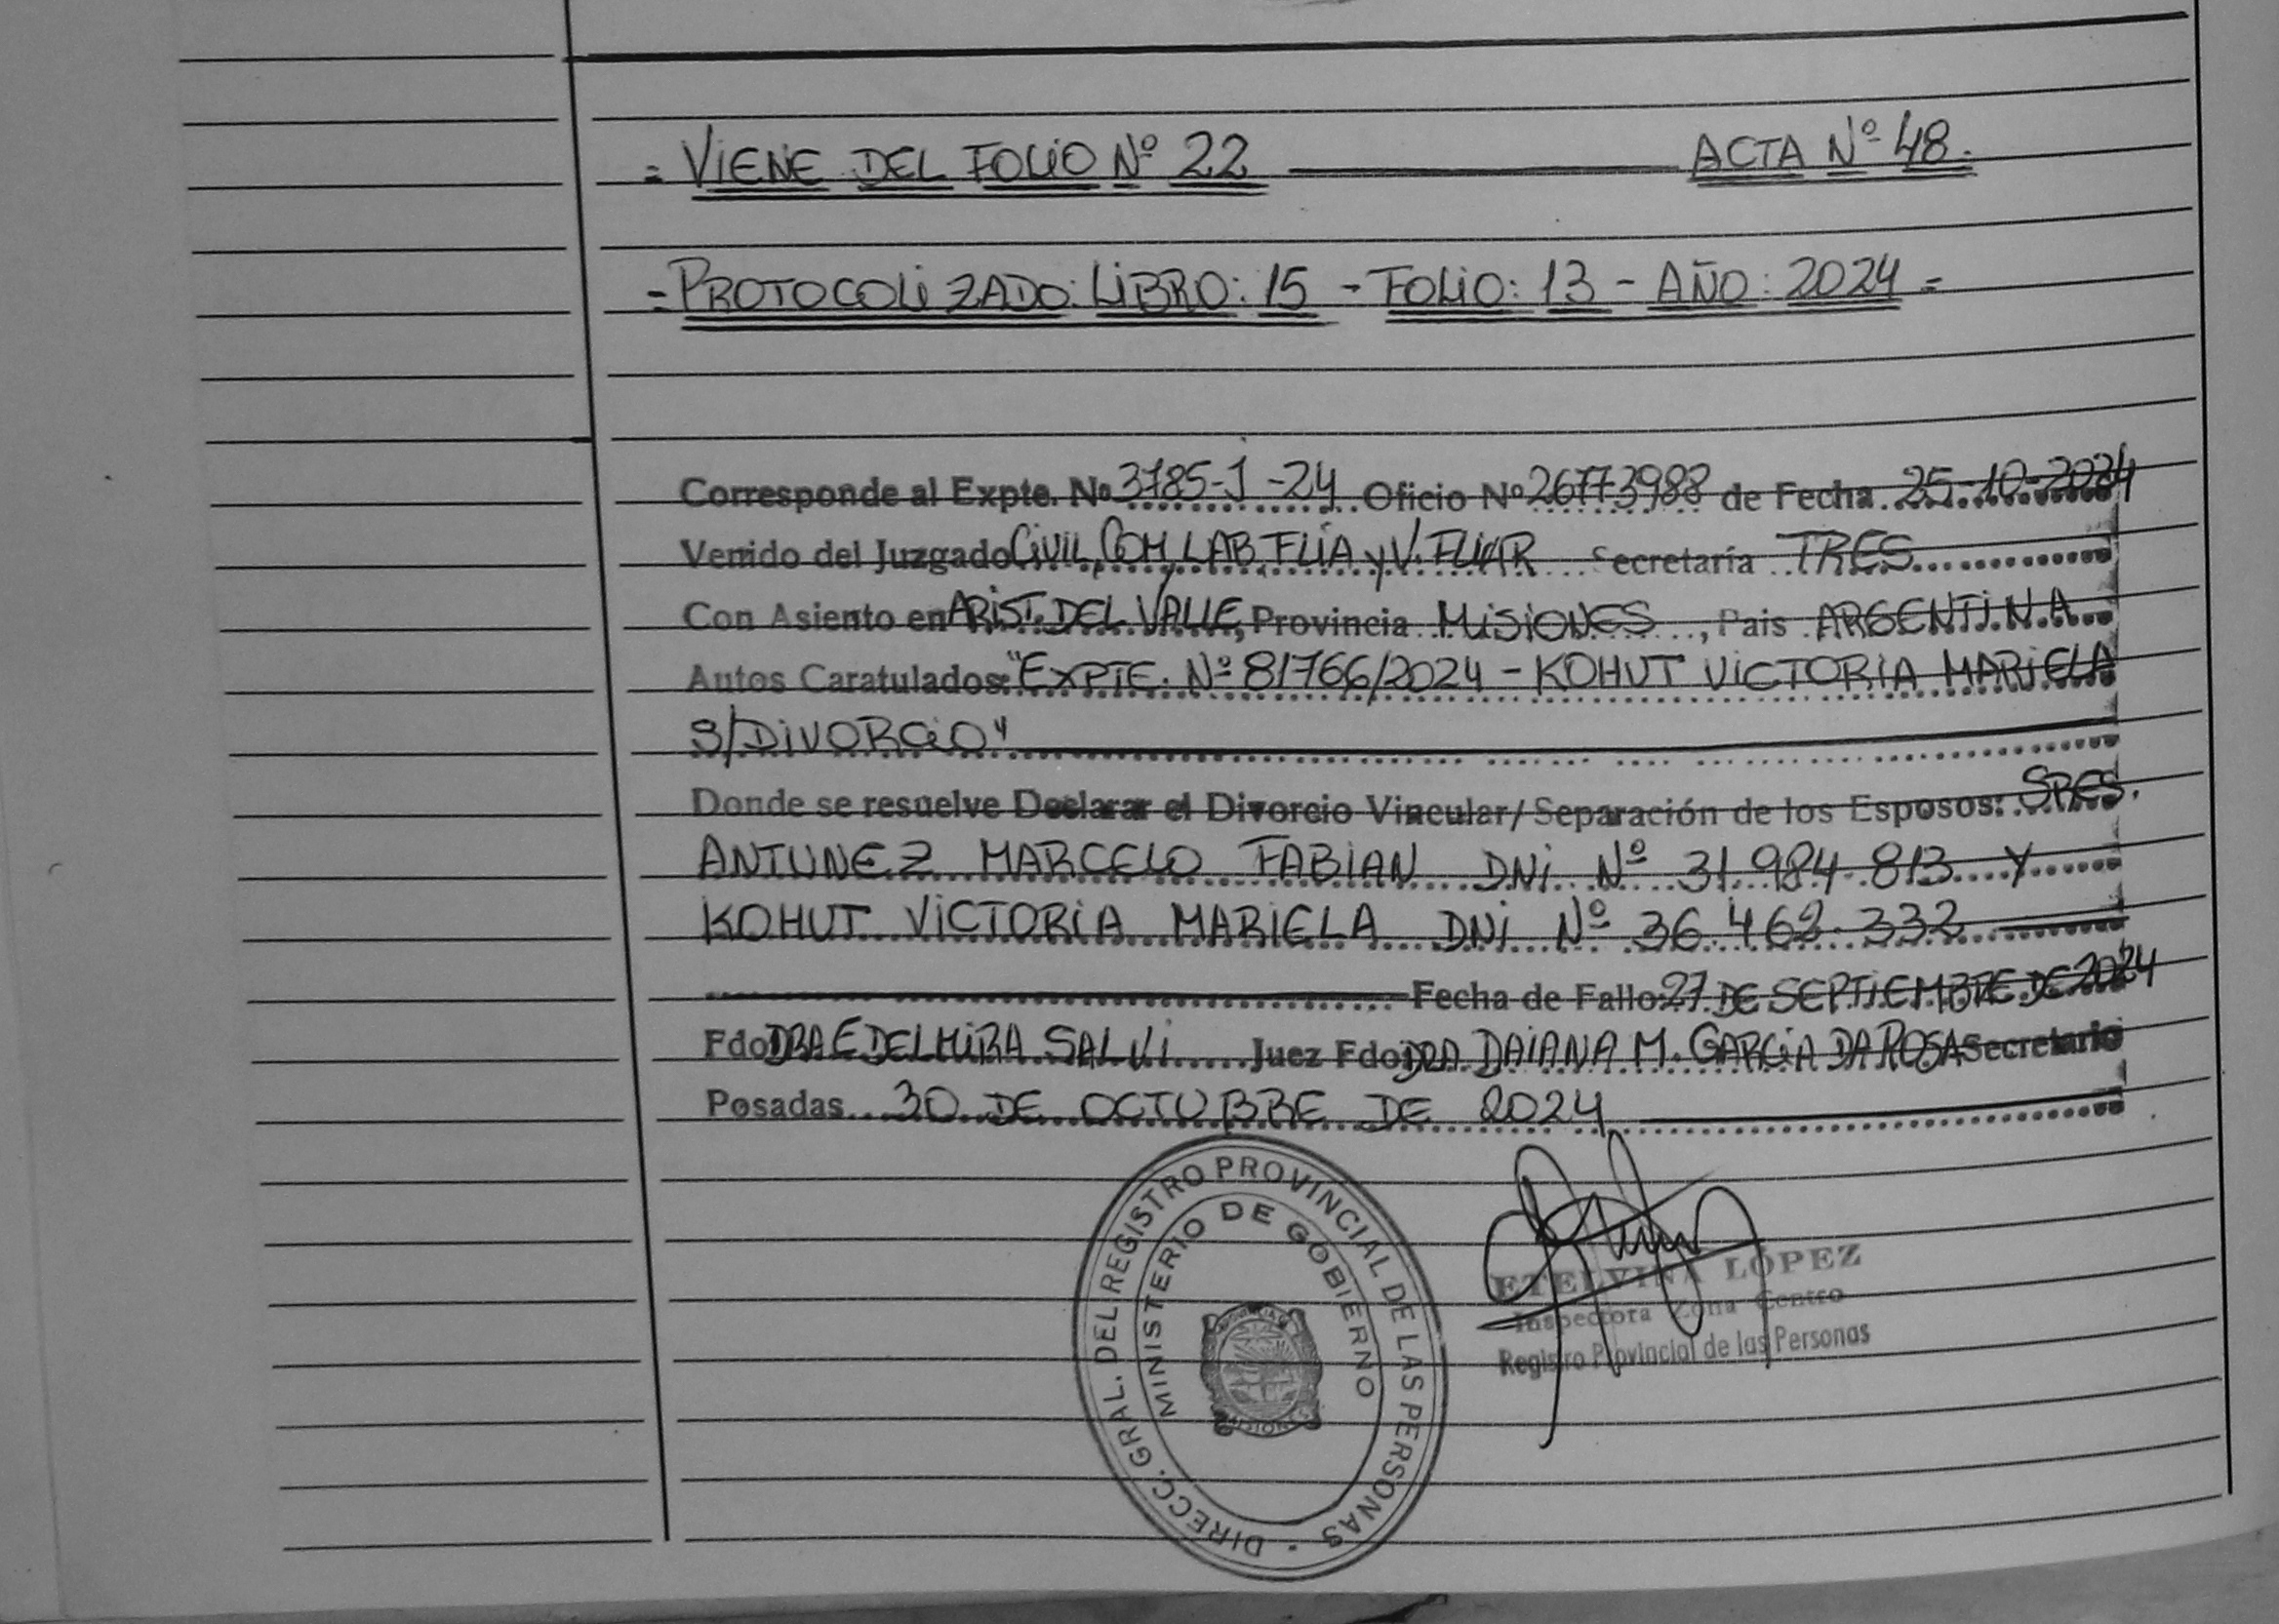 = VIENE DEL FOLIO Nº 22 ACTA Nº 48.
= PROTOCOLIZADO: LIBRO: 15 - FOLIO: 13 - AÑO: 2024 =
Corresponde al Expte. Nº 3785-J-24 Oficio Nº 26773988 de Fecha 25-10-2024
Venido del Juzgado CIVIL, COM, LAB. FLIA y V. FLIAR Secretaría TRES
Con Asiento en ARIST. DEL VALLE, Provincia MISIONES, Pais ARGENTINA
Autos Caratulados: "EXPTE. Nº 81766/2024 - KOHUT VICTORIA MARIELA
S/DIVORCIO"
Donde se resuelve Declarar el Divorcio Vincular/Separación de los Esposos: SRES.
ANTUNEZ MARCELO FABIAN DNI Nº 31.984.813 Y
KOHUT VICTORIA MARIELA DNI Nº 36.462.332
Fecha de Fallo: 27 DE SEPTIEMBRE DE 2024
Fdo DRA EDELMIRA SALVI Juez Fdo DRA. DAIANA M. GARCIA DA ROSA Secretario
Posadas 30 DE OCTUBRE DE 2024
DIRECC. GRAL. DEL REGISTRO PROVINCIAL DE LAS PERSONAS
MINISTERIO DE GOBIERNO
MISIONES
ETELVINA LÓPEZ
Inspectora Zona Centro
Registro Provincial de las Personas